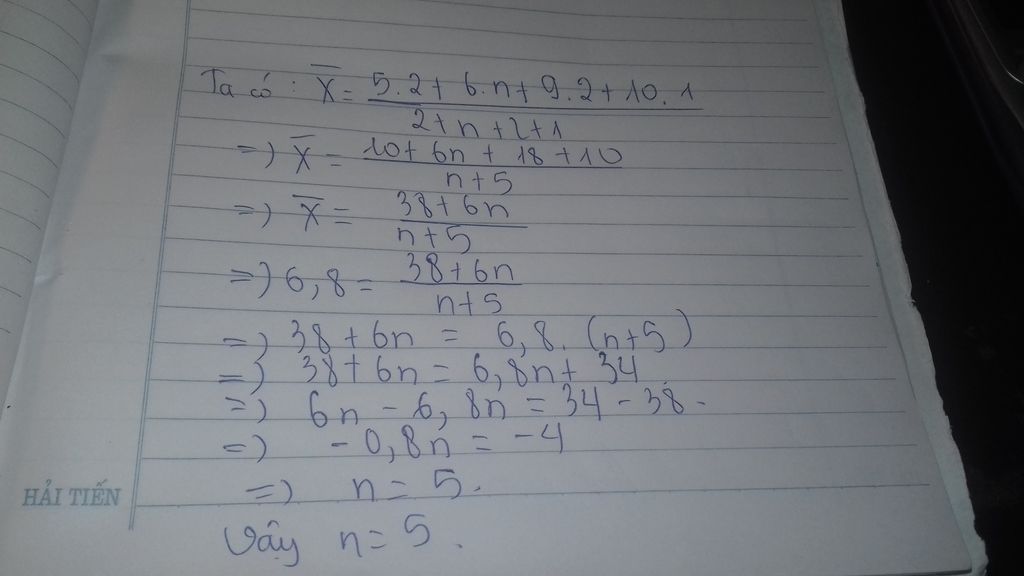 Ta có : X̅ = 5.2 + 6.n + 9.2 + 10.1 / 2 + n + 2 + 1
=) X̅ = 10 + 6n + 18 + 10 / n + 5
=) X̅ = 38 + 6n / n + 5
=) 6,8 = 38 + 6n / n + 5
=) 38 + 6n = 6,8. (n+5)
=) 38 + 6n = 6,8n + 34
=) 6n - 6,8n = 34 - 38.
=) -0,8n = -4
=) n = 5.
HẢI TIẾN
Vậy n = 5.